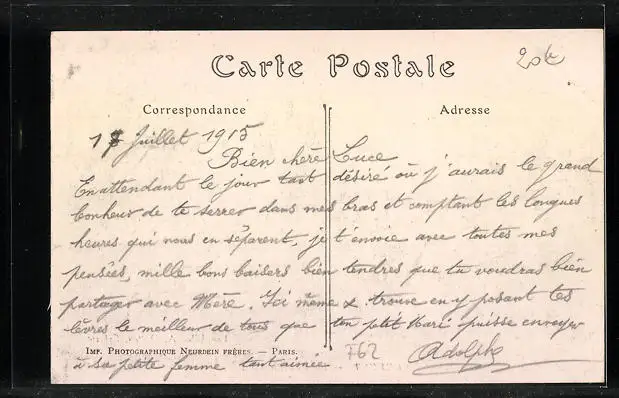 Carte Postale
Correspondance
Adresse
17 Juillet 1915
Bien chère Luce
En attendant le jour tant désiré où j'aurais le grand
bonheur de te serrer dans mes bras et comptant les longues
heures qui nous en séparent, je t'envoie avec toutes mes
pensées, mille bons baisers bien tendres que tu voudras bien
partager avec Mère. Ici même & trouve en y posant tes
lèvres le meilleur de tous que ton petit Mari puisse envoyer
Imp. Photographique Neurdein Frères. — Paris.
762
Adolphe
à sa petite femme tant aimée